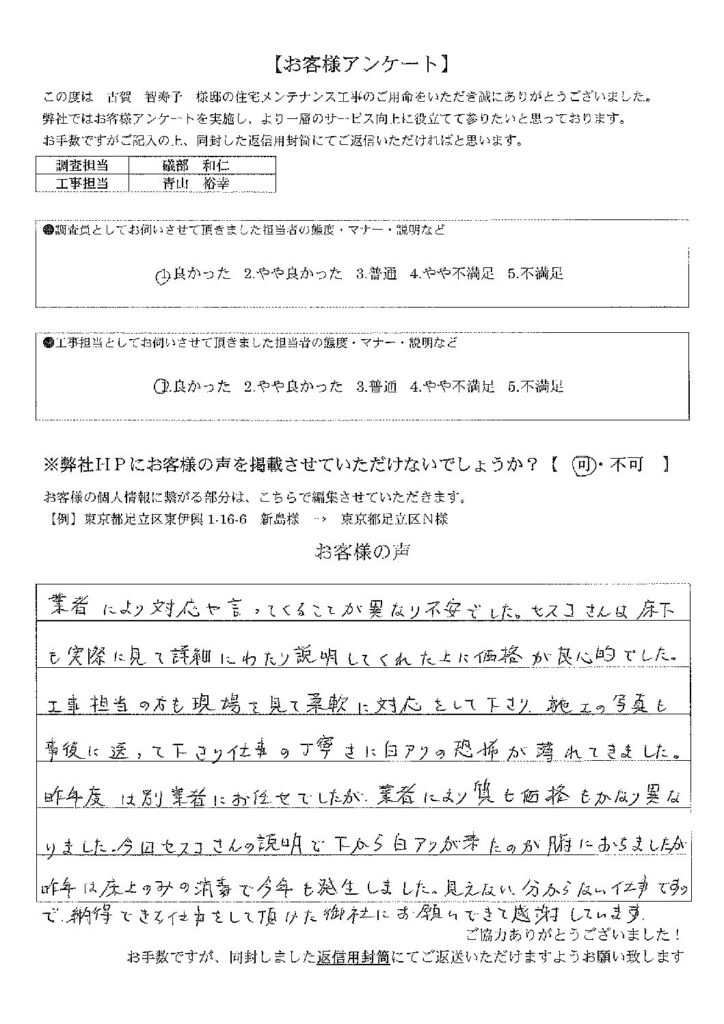 【お客様アンケート】
この度は 古賀 智寿子 様邸の住宅メンテナンス工事のご用命をいただき誠にありがとうございました。
弊社ではお客様アンケートを実施し、より一層のサービス向上に役立てて参りたいと思っております。
お手数ですがご記入の上、同封した返信用封筒にてご返信いただければと思います。
調査担当 礒部 和仁
工事担当 青山 裕幸
●調査員としてお伺いさせて頂きました担当者の態度・マナー・説明など
1.良かった 2.やや良かった 3.普通 4.やや不満足 5.不満足
●工事担当としてお伺いさせて頂きました担当者の態度・マナー・説明など
1.良かった 2.やや良かった 3.普通 4.やや不満足 5.不満足
※弊社HPにお客様の声を掲載させていただけないでしょうか?【 可・不可 】
お客様の個人情報に繋がる部分は、こちらで編集させていただきます。
【例】東京都足立区東伊興1-16-6 新島様 → 東京都足立区N様
お客様の声
業者により対応や言ってくることが異なり不安でした。セスコさんは床下
も実際に見て詳細にわたり説明してくれた上に価格が良心的でした。
工事担当の方も現場を見て柔軟に対応をして下さり、施工の写真も
事後に送って下さり仕事の丁寧さに白アリの恐怖が薄れてきました。
昨年度は別業者にお任せでしたが、業者により質も価格もかなり異な
りました。今回セスコさんの説明で下から白アリが来たのが腑におちましたが
昨年は床上のみの消毒で今年も発生しました。見えない、分からない仕事ですの
で、納得できる仕事をして頂けた御社にお願いできて感謝しています。
ご協力ありがとうございました!
お手数ですが、同封しました返信用封筒にてご返送いただけますようお願い致します